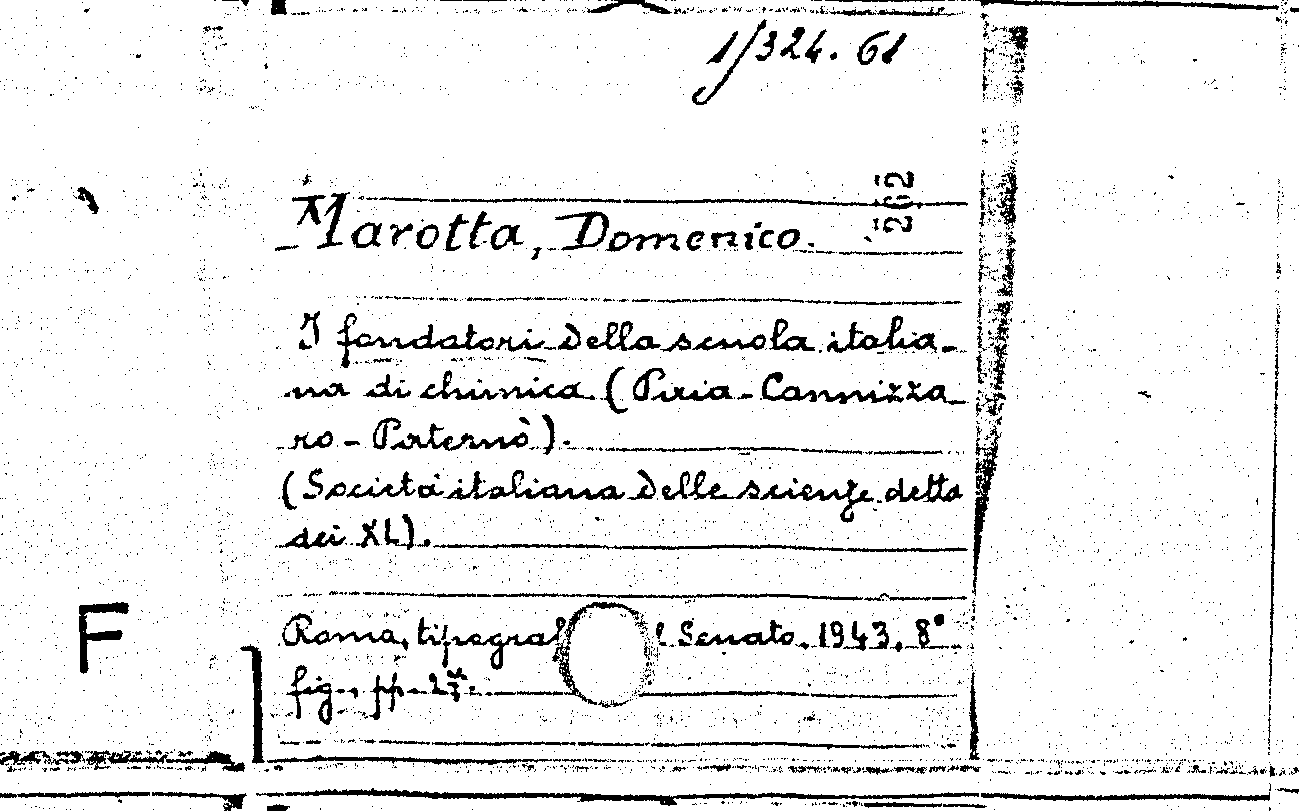 1/324.61
262
Marotta, Domenico.
I fondatori della scuola italia-
na di chimica (Piria-Cannizza-
ro-Paternò).
(Società italiana delle scienze detta
dei XL).
Roma, tipograf l Senato, 1943, 8°
fig., pp.
F